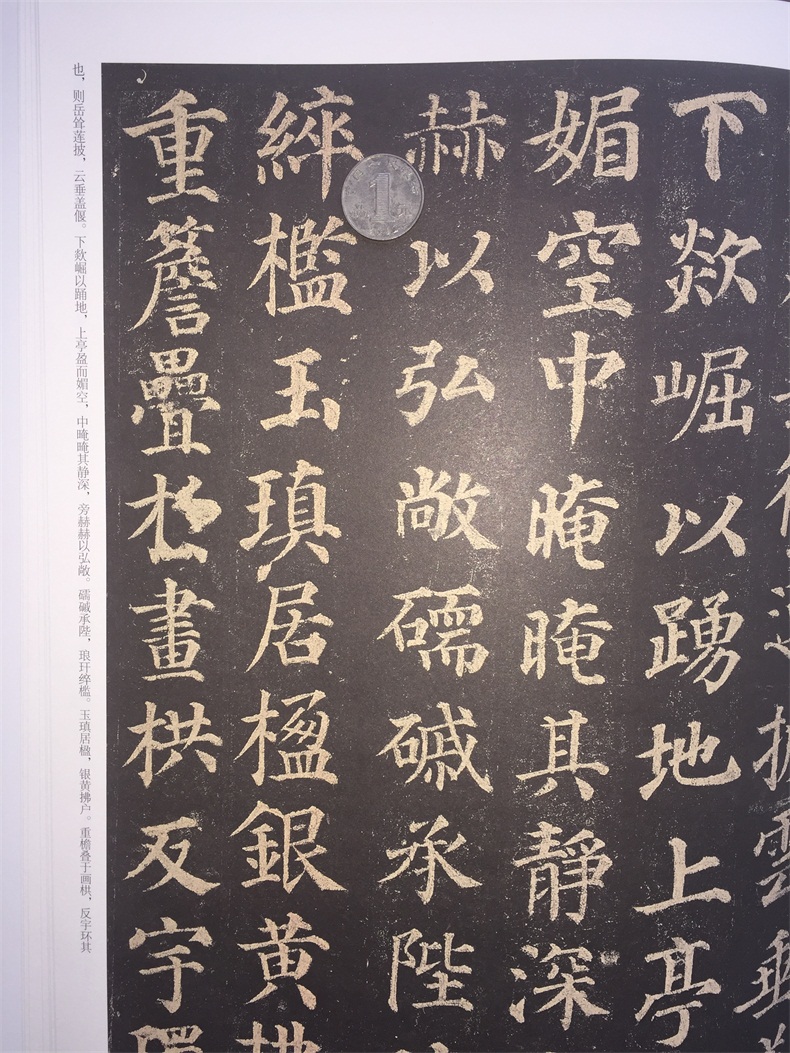 雲垂
下欻崛以踴地上亭
媚空中晻晻其靜深
赫以弘敞礝磩承陛
綷檻玉瑱居楹銀黃
重簷疊於畫栱反宇
1
也，则岳耸莲披，云垂盖偃。下欻崛以踊地，上亭盈而媚空，中晻晻其静深，旁赫赫以弘敞。礝磩承陛，琅玕綷槛。玉瑱居楹，银黄拂户。重檐叠于画栱，反宇环其